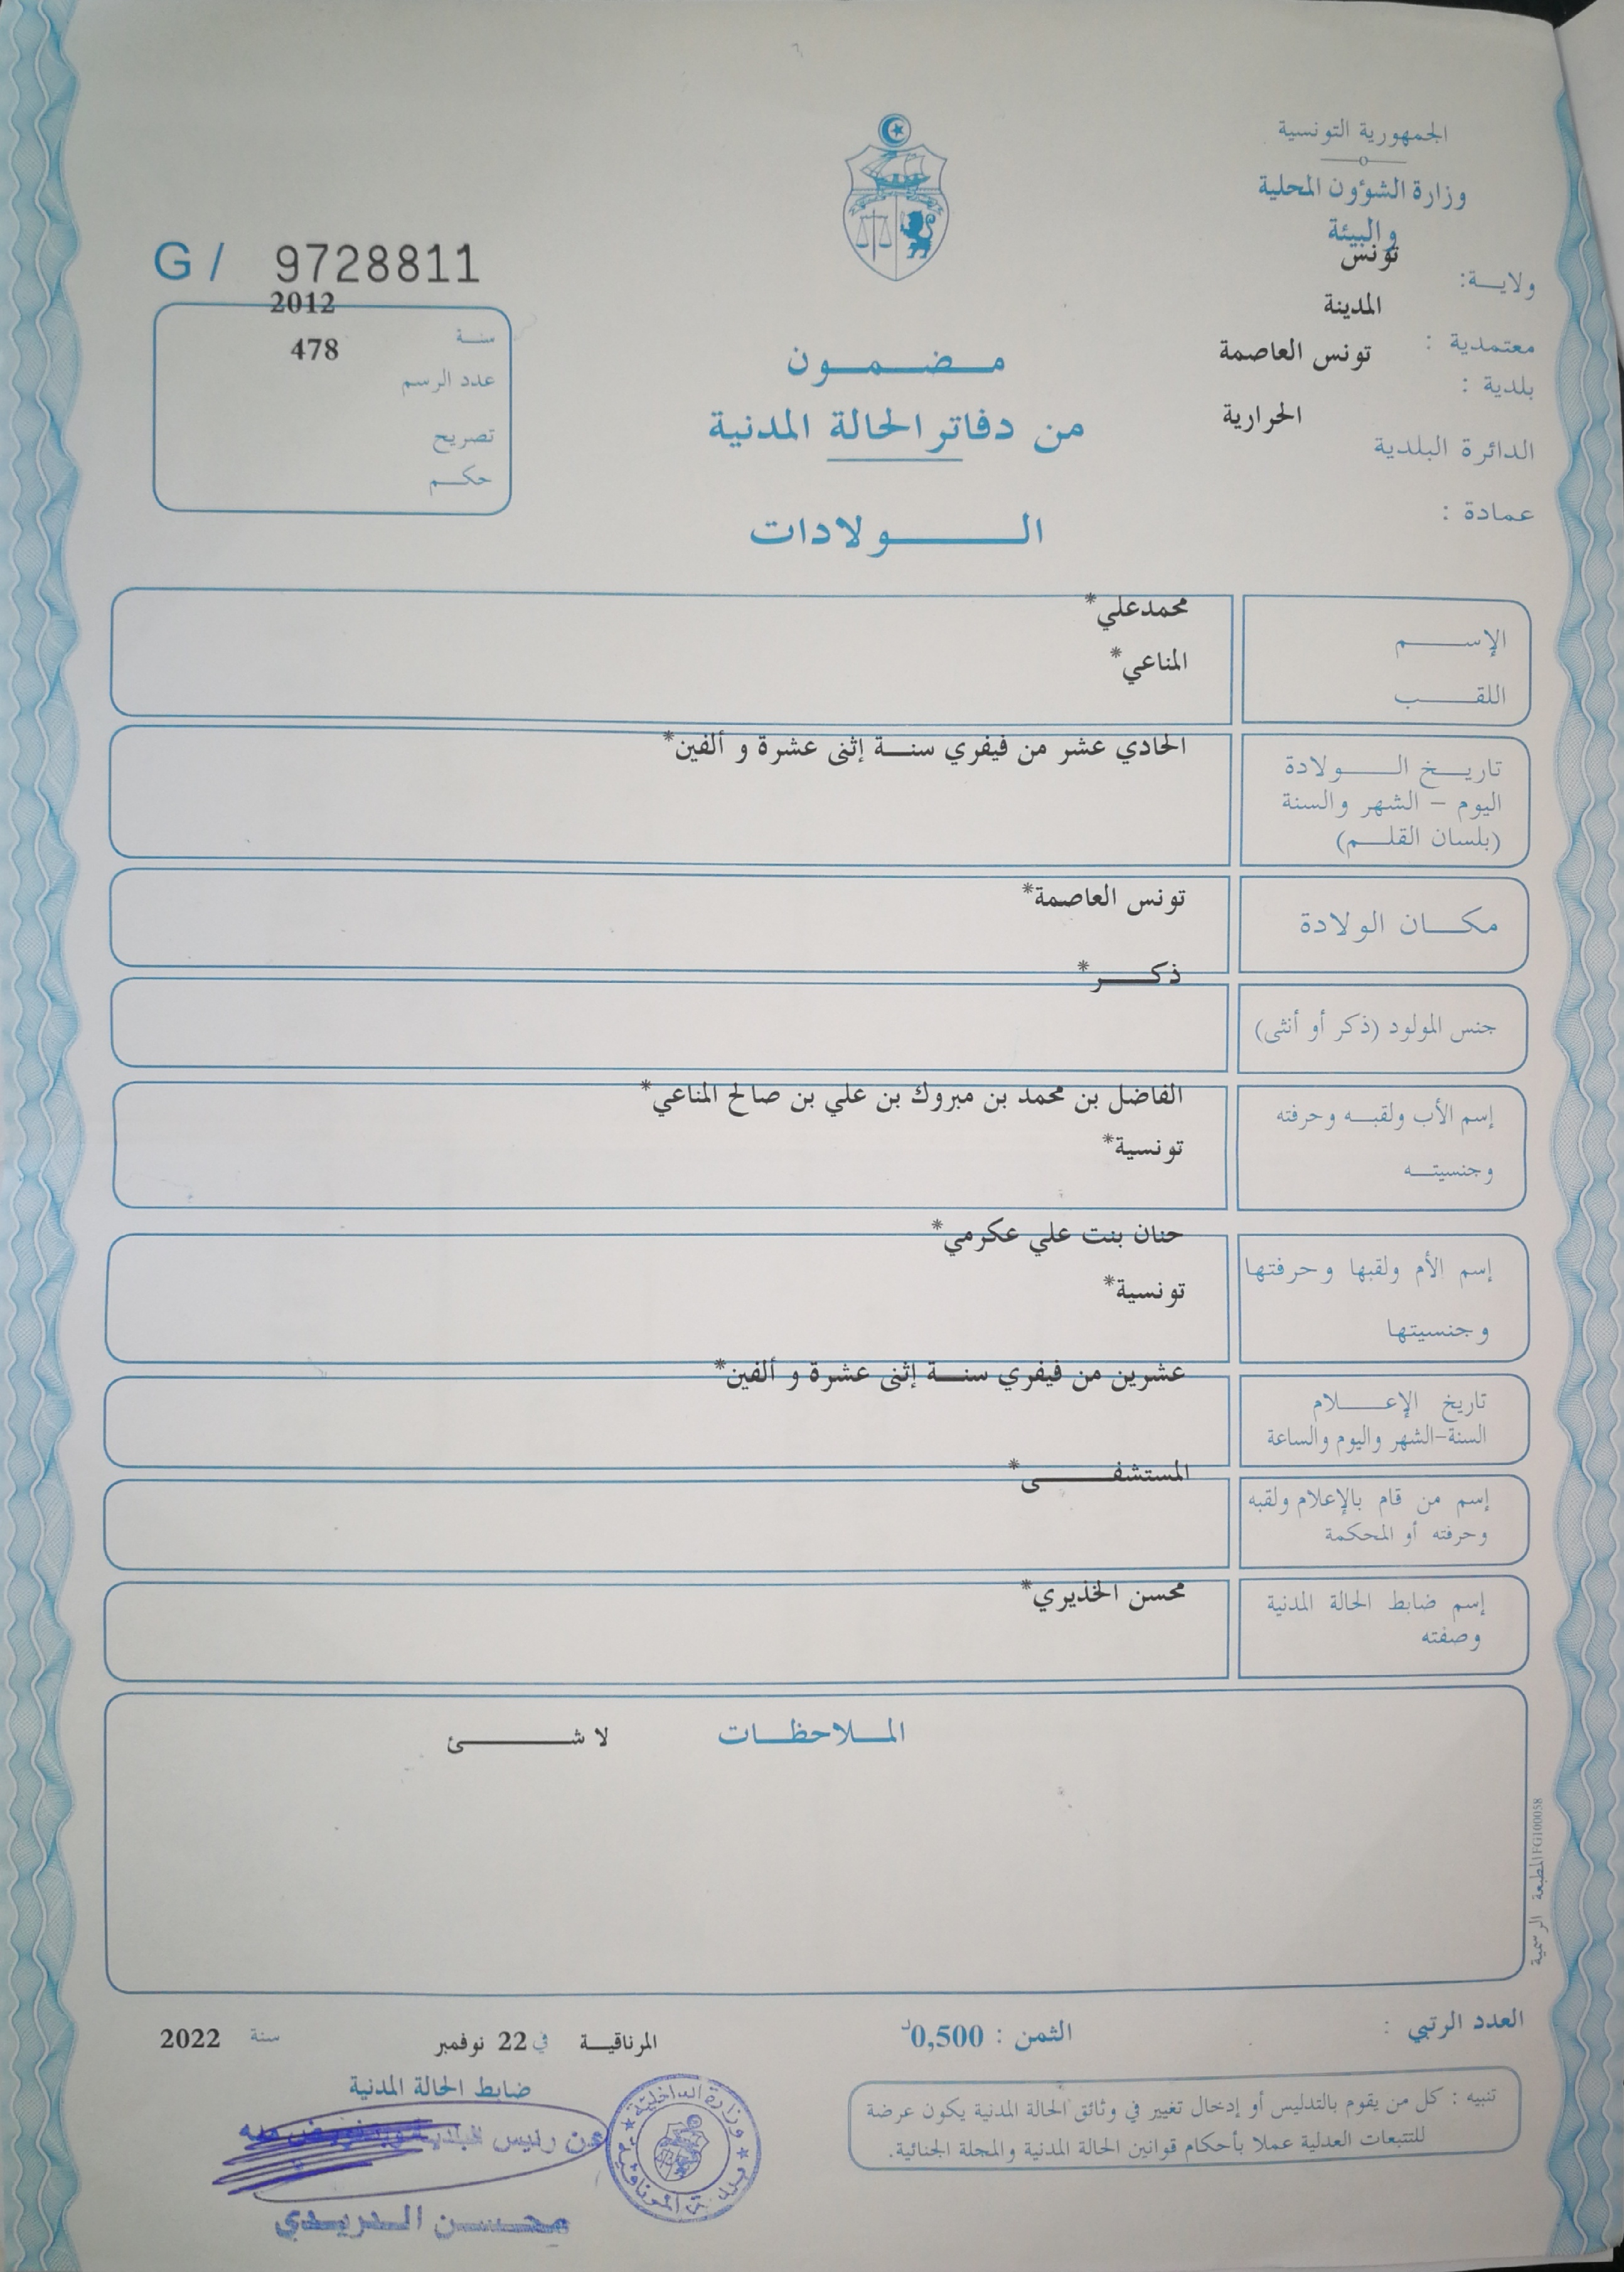 الجمهورية التونسية
وزارة الشؤون المحلية
والبيئة
ولايـــة: تونس
معتمدية : المدينة
بلدية : تونس العاصمة
الدائرة البلدية الحرارية
عمادة :
G / 9728811
سنــة 2012
عدد الرسم 478
تصريح
حكــم
مـضـمـون
من دفاتر الحالة المدنية
الــولادات
الإســــم محمدعلي*
اللقــــب المناعي*
تاريــخ الــولادة
اليوم – الشهر والسنة
(بلسان القلــم)
الحادي عشر من فيفري سنــة إثنى عشرة و ألفين*
مكـــان الولادة تونس العاصمة*
جنس المولود (ذكر أو أنثى) ذكـــر*
إسم الأب ولقبــه وحرفته الفاضل بن محمد بن مبروك بن علي بن صالح المناعي*
وجنسيتــه تونسية*
إسم الأم ولقبها وحرفتها حنان بنت علي عكرمي*
وجنسيتها تونسية*
تاريخ الإعـــلام
السنة-الشهر واليوم والساعة
عشرين من فيفري سنــة إثنى عشرة و ألفين*
إسم من قام بالإعلام ولقبه
وحرفته أو المحكمة
المستشفـــى*
إسم ضابط الحالة المدنية
وصفته
محسن الخذيري*
المــلاحظــات لا شـــئ
المطبعة الرسمية FG100058
العدد الرتبي :
الثمن : 0,500د
المرناقيــة في 22 نوفمبر سنة 2022
ضابط الحالة المدنية
عن رئيس البلدية وبتفويض منه
محـسـن الـدريـدي
وزارة الداخلية
بلدية المرناقية
تنبيه : كل من يقوم بالتدليس أو إدخال تغيير في وثائق الحالة المدنية يكون عرضة
للتتبعات العدلية عملا بأحكام قوانين الحالة المدنية والمجلة الجنائية.